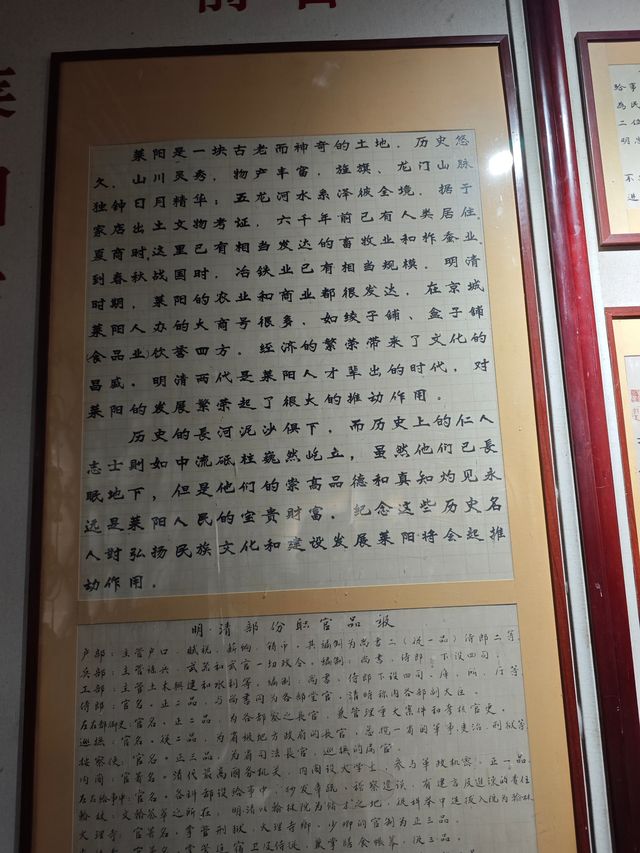 前言
莱阳是一块古老而神奇的土地，历史悠
久，山川灵秀，物产丰富，旌旗、龙门山脉
独钟日月精华；五龙河水系泽被全境，据于
家店出土文物考证，六千年前已有人类居住。
夏商时，这里已有相当发达的畜牧业和柞蚕业，
到春秋战国时，冶铁业已有相当规模。明清
时期，莱阳的农业和商业都很发达，在京城
莱阳人办的大商号很多，如绫子铺、盒子铺
(食品业)饮誉四方。经济的繁荣带来了文化的
昌盛。明清两代是莱阳人才辈出的时代，对
莱阳的发展繁荣起了很大的推动作用。
历史的長河泥沙俱下，而历史上的仁人
志士则如中流砥柱巍然屹立，虽然他们已長
眠地下，但是他们的崇高品德和真知灼见永
远是莱阳人民的宝贵財富，纪念这些历史名
人對弘扬民族文化和建设发展莱阳将会起推
动作用。
明·清部份职官品级
户部：主管户口、赋税、薪饷、销中，其编制为尚書二(从一品)侍郎二等。
兵部：主管练兵、武器和武官一切政令，编制：尚書、侍郎、下设四司。
工部：主管土木興建和水利等，编制：尚書、侍郎下设四司、库、所、厅等。
侍郎：官名。正二品，与尚書同为各部堂官，清時称内各部副大臣。
左右都御史：官名。正二品，为各部察之長官，兼管理重大案件和考核官吏。
巡撫：官名。從二品，为省级地方政府的長官，总揽一省的軍事、吏治、刑狱等。
按察使：官名。正三品，为省司法長官，巡撫的属官。
内阁：官署名。清代最高國务机关，内阁设大学士，参与軍政机密，正一品。
左右给事中：官名。各科都设给事中
翰林：文翰荟萃之所在，明清以翰林院为储才之地，從科举中选拔入院为翰林
大理寺：官署名，掌管刑狱，大理寺卿、少卿的官制为正三品。